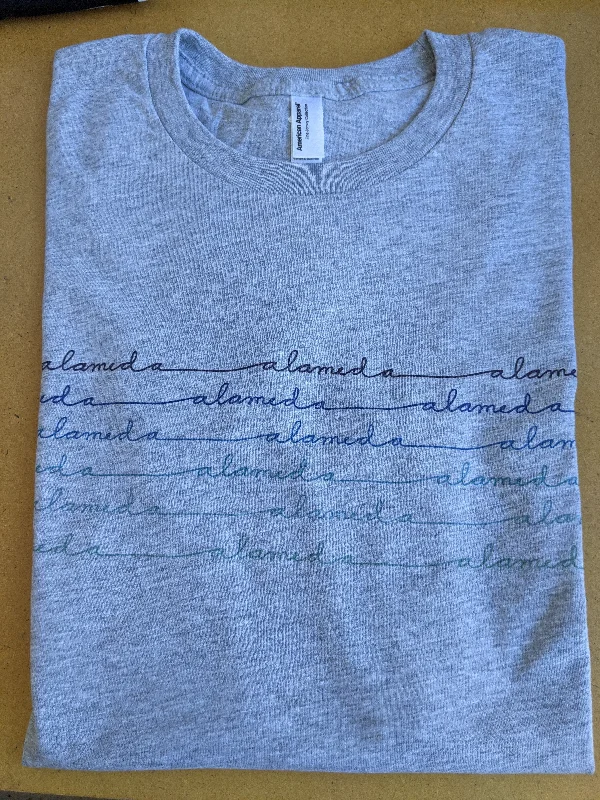 American Apparel
alameda alameda alame
eda alameda alameda
alameda alameda alam
eda alameda alameda
alameda alameda ala
eda alameda alamed